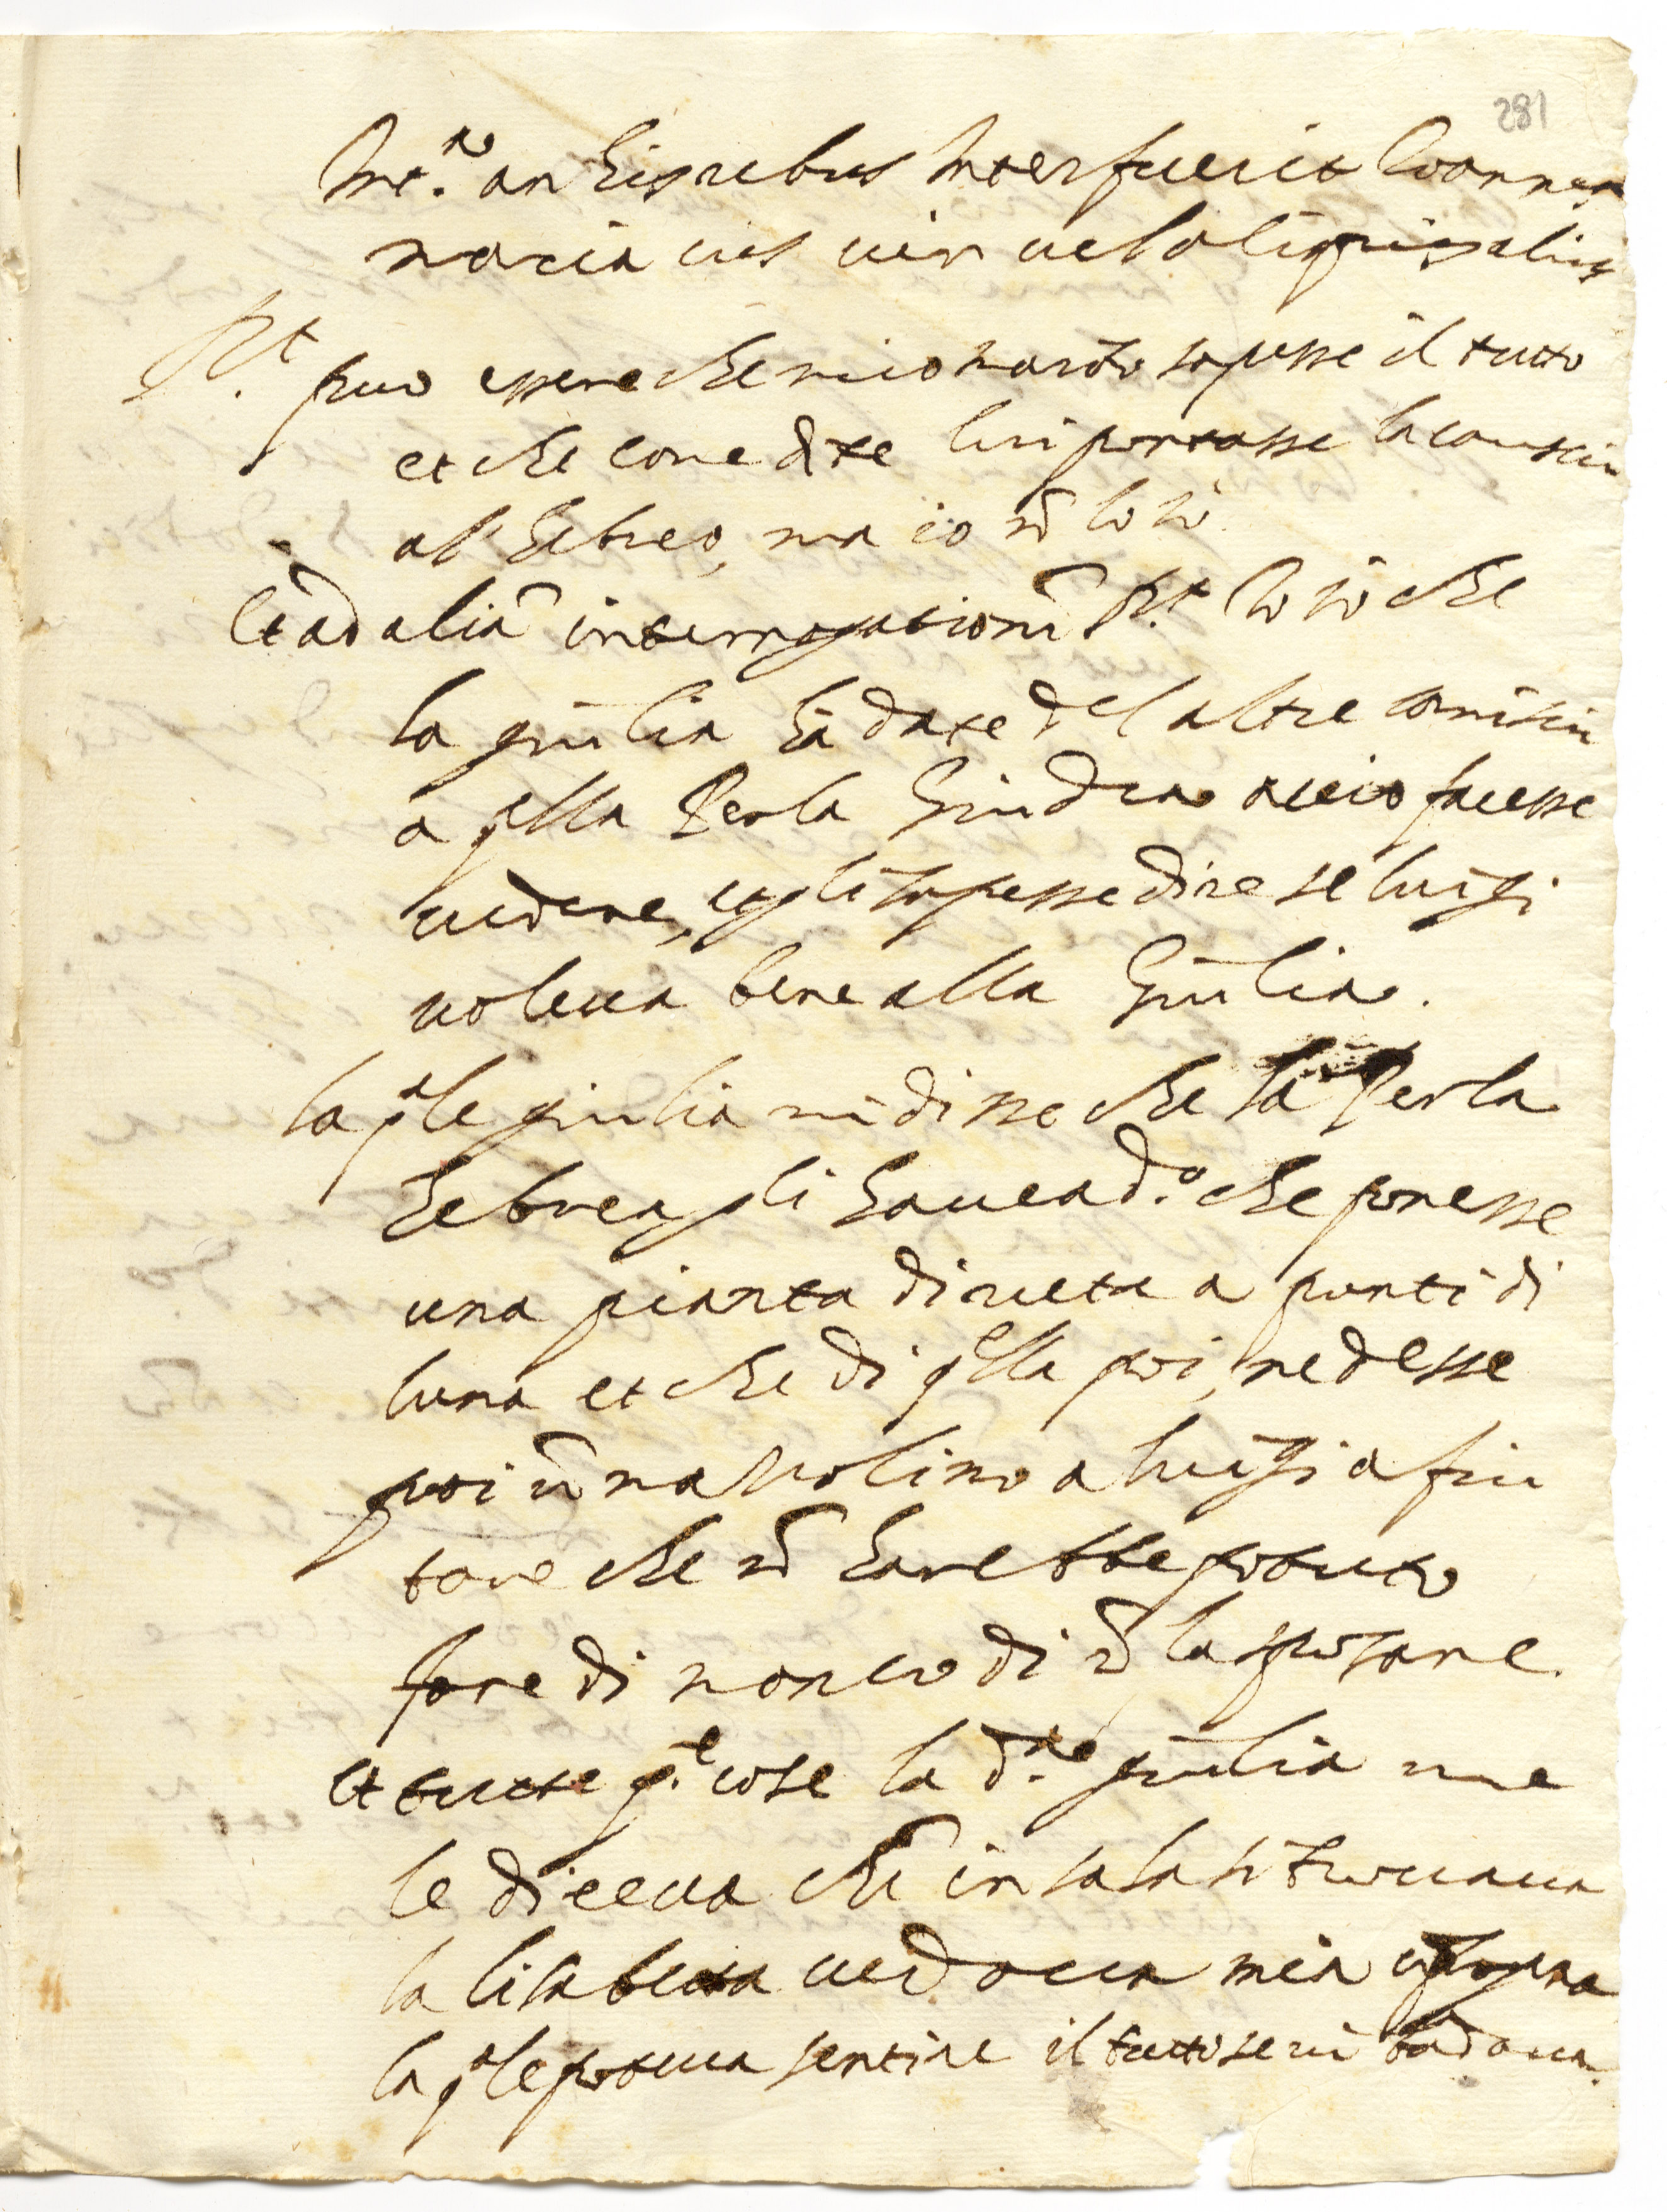 281
Int.ta an his rebus interfuerit Ioannes
maria eius uir uel aliquis alius
R.t puo essere che mio marito sapesse il tutto
et che come dite lui portasse la camiscia
al' hebreo, ma io nō lo sò
Et ad aliā interrogationē R.t Io sò che
la giulia hà date del altre camiscie
a qlla Perla Giudea acciò facesse
uedere, et gli sapesse dire se luigi
uoleua bene alla Giulia.
la qale giulia mi disse che la Perla
hebrea gli haueua d.o che ponesse
una pianta di ruta a punti di
luna et che di qlla poi, ne desse
poi ū mazzolino a luigi a fiu
tare che nō harebbe potuto
fare di manco di nō la sposare.
et tutte q.e cose la d.ta giulia me
le diceua chē in casa si trouaua
la lisabetta uedoua mia
la qale poteua sentire il tutto se ui badaua.